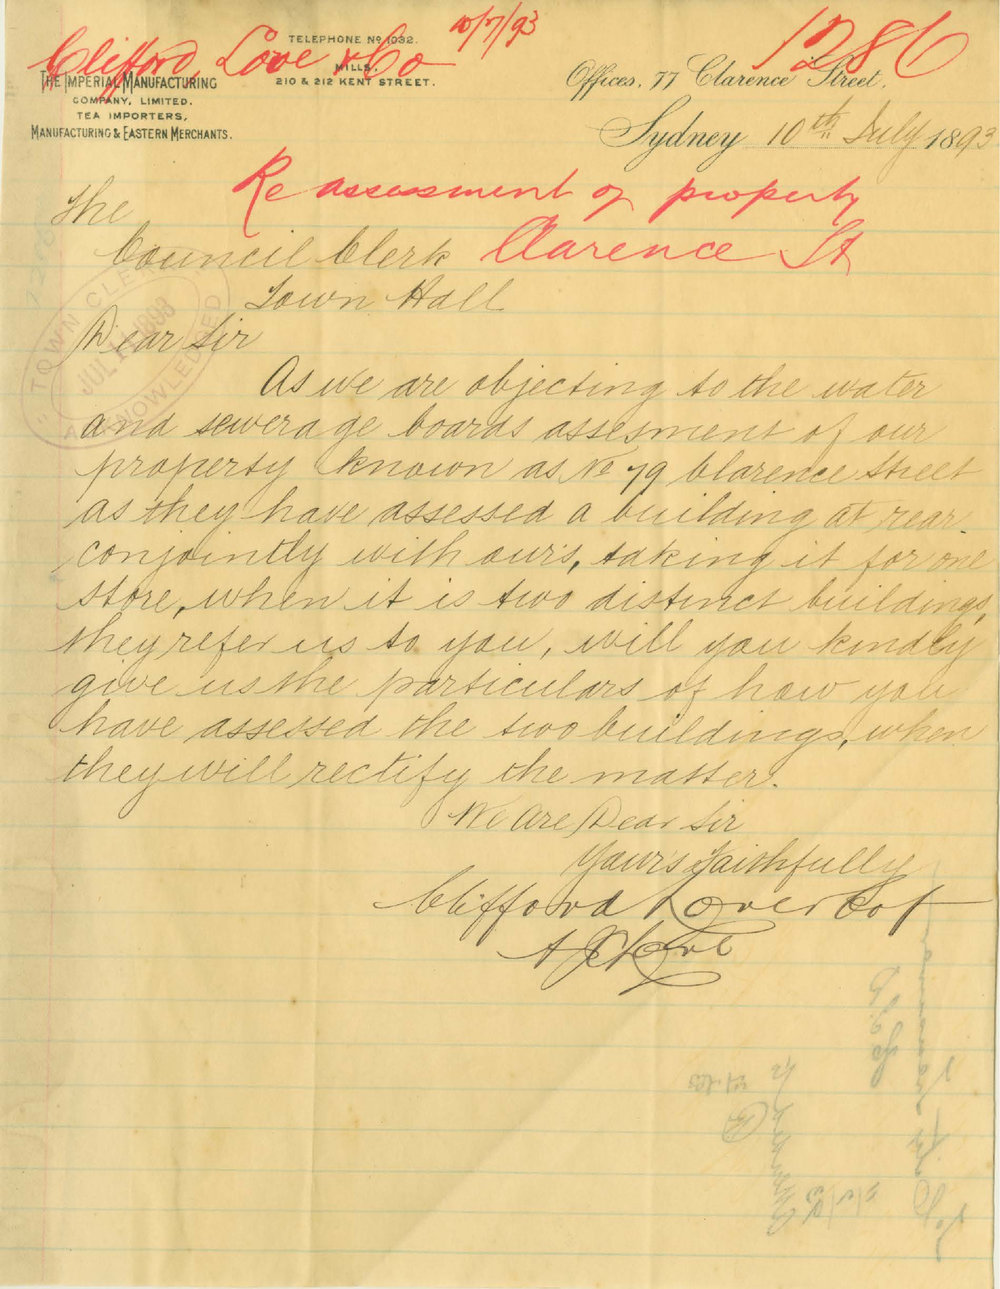 Clifford Love & Co 10/7/93 1286
TELEPHONE No 1032.
MILLS,
210 & 212 KENT STREET.
THE IMPERIAL MANUFACTURING
COMPANY, LIMITED.
TEA IMPORTERS,
MANUFACTURING & EASTERN MERCHANTS.
Offices, 77 Clarence Street,
Sydney 10th July 1893
Re assessment of property
Clarence St
The
Council Clerk
Town Hall
TOWN CLERK
JUL 11 1893
ACKNOWLEDGED
Dear Sir
As we are objecting to the water
and sewerage boards assesment of our
property known as No 79 Clarence Street
as they have assessed a building at rear
conjointly with ours, taking it for one
store, when it is two distinct buildings,
they refer us to you, will you kindly
give us the particulars of how you
have assessed the two buildings, when
they will rectify the matter.
We Are Dear Sir
Yours Faithfully
Clifford Love & Co